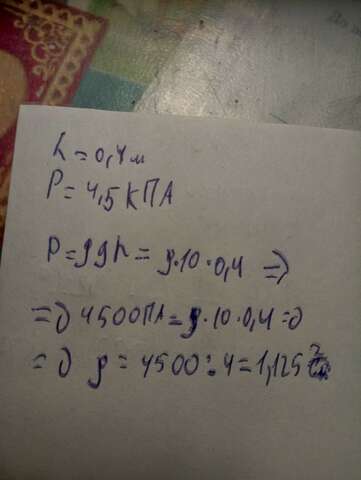 h = 0,4м
P = 4,5 кПА
P = ρgh = ρ·10·0,4 =>
=> 4500ПА = ρ·10·0,4 =>
=> ρ = 4500:4 = 1,125